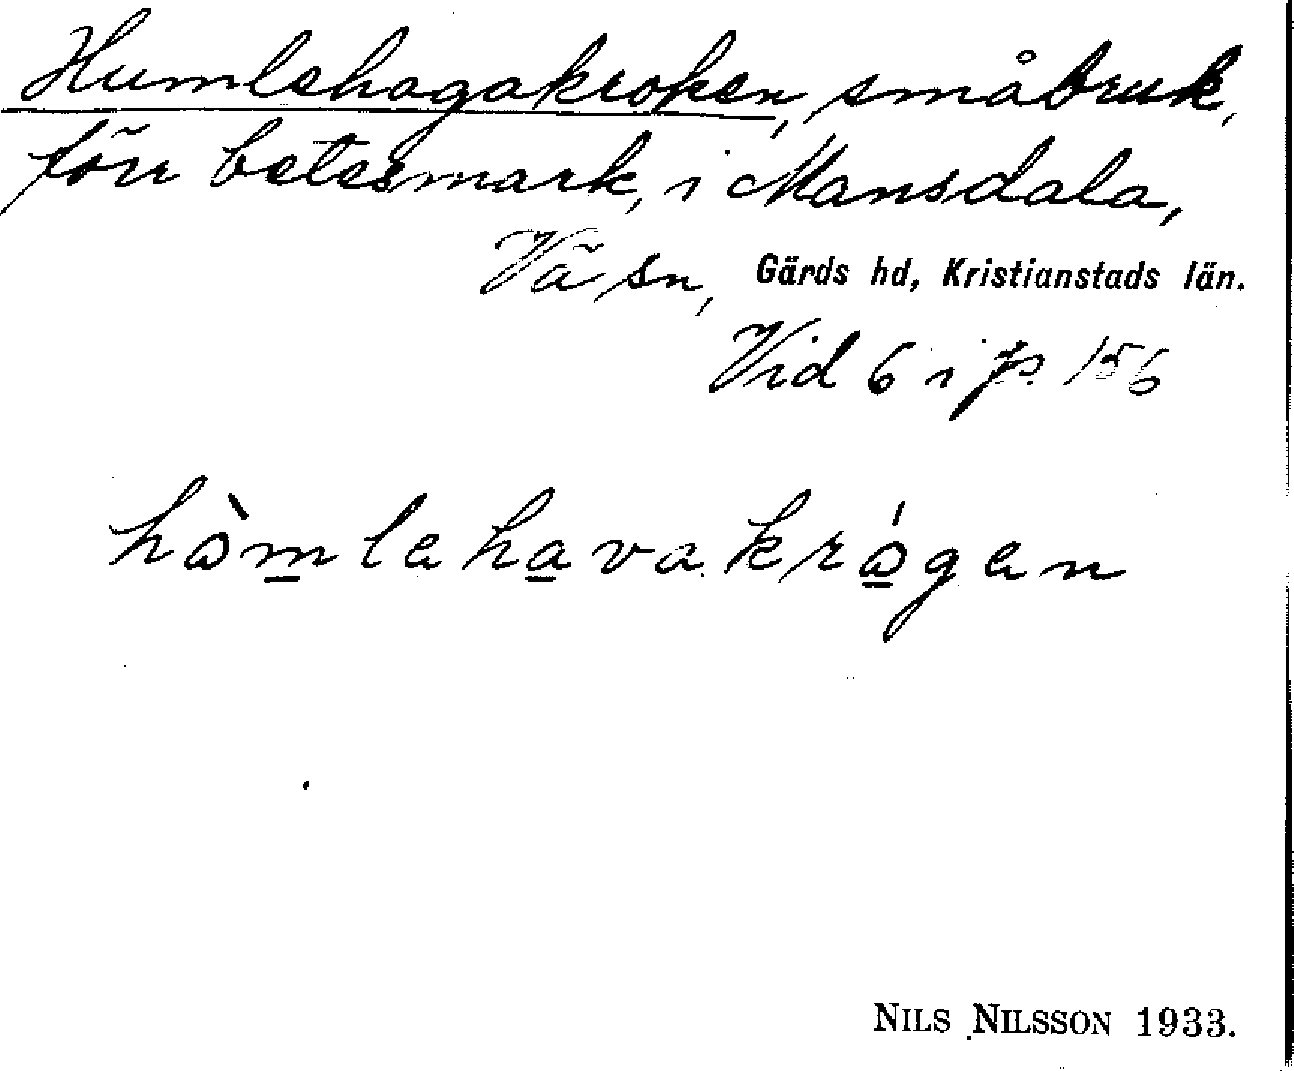 Humlehagakroken, småbruk,
förr betesmark, i Mansdala,
Vä sn, Gärds hd, Kristianstads län.
Vid 6 i fs. 156
hòmlehavakrógen
NILS NILSSON 1933.